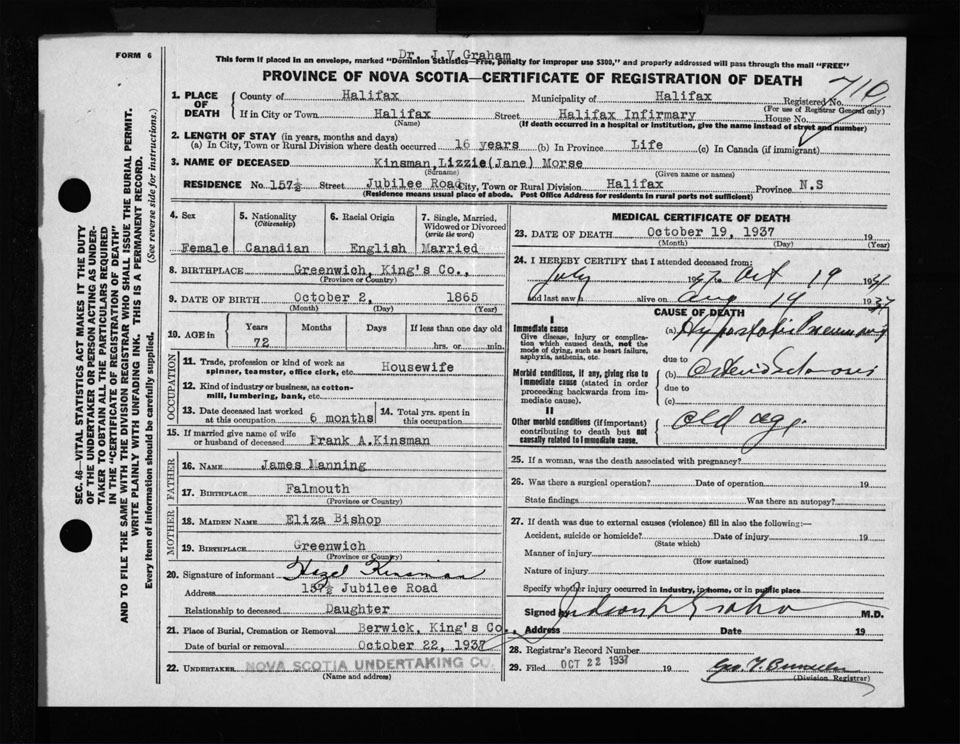 FORM 6
Dr. J.V. Graham
This form if placed in an envelope, marked "Dominion Statistics—Free, penalty for improper use $300," and properly addressed will pass through the mail "FREE"
PROVINCE OF NOVA SCOTIA—CERTIFICATE OF REGISTRATION OF DEATH
710
1. PLACE OF DEATH
County of Halifax Municipality of Halifax Registered No.
(For use of Registrar General only)
If in City or Town Halifax Street Halifax Infirmary House No.
(Name) (If death occurred in a hospital or institution, give the name instead of street and number)
2. LENGTH OF STAY (in years, months and days)
(a) In City, Town or Rural Division where death occurred 16 years (b) In Province Life (c) In Canada (if immigrant)
3. NAME OF DECEASED Kinsman, Lizzie (Jane) Morse
(Surname) (Given name or names)
RESIDENCE No. 157½ Street Jubilee Road City, Town or Rural Division Halifax Province N.S
(Residence means usual place of abode. Post Office Address for residents in rural parts not sufficient)
4. Sex
Female
5. Nationality
(Citizenship)
Canadian
6. Racial Origin
English
7. Single, Married, Widowed or Divorced
(write the word)
Married
8. BIRTHPLACE Greenwich, King's Co.,
(Province or Country)
9. DATE OF BIRTH October 2, 1865
(Month) (Day) (Year)
10. AGE in Years Months Days If less than one day old
72 hrs. or min.
OCCUPATION
11. Trade, profession or kind of work as spinner, teamster, office clerk, etc. Housewife
12. Kind of industry or business, as cotton-mill, lumbering, bank, etc.
13. Date deceased last worked at this occupation 6 months
14. Total yrs. spent in this occupation
15. If married give name of wife or husband of deceased Frank A. Kinsman
FATHER
16. NAME James Manning
17. BIRTHPLACE Falmouth
(Province or Country)
MOTHER
18. MAIDEN NAME Eliza Bishop
19. BIRTHPLACE Greenwich
(Province or Country)
20. Signature of informant Hazel Kinsman
Address 157½ Jubilee Road
Relationship to deceased Daughter
21. Place of Burial, Cremation or Removal Berwick, King's Co.,
Date of burial or removal October 22, 1937
22. UNDERTAKER NOVA SCOTIA UNDERTAKING CO.
(Name and address)
MEDICAL CERTIFICATE OF DEATH
23. DATE OF DEATH October 19, 1937 19
(Month) (Day) (Year)
24. I HEREBY CERTIFY that I attended deceased from:
July 1937 to Oct 19 1937
and last saw h alive on Aug 19 1937
CAUSE OF DEATH
I
Immediate cause
Give disease, injury or complication which caused death, not the mode of dying, such as heart failure, asphyxia, asthenia, etc.
(a) Hypostatic Pneumonia
due to
Morbid conditions, if any, giving rise to immediate cause (stated in order proceeding backwards from immediate cause).
(b) Arteriosclerosis
due to
(c)
II
Other morbid conditions (if important) contributing to death but not causally related to immediate cause.
Old age
25. If a woman, was the death associated with pregnancy?
26. Was there a surgical operation? Date of operation 19
State findings Was there an autopsy?
27. If death was due to external causes (violence) fill in also the following:—
Accident, suicide or homicide? Date of injury 19
(State which)
Manner of injury
(How sustained)
Nature of injury
Specify whether injury occurred in industry, in home, or in public place
Signed Judson V Graham M.D.
Address Date 19
28. Registrar's Record Number
29. Filed OCT 22 1937 19
(Division Registrar)
SEC. 46—VITAL STATISTICS ACT MAKES IT THE DUTY
OF THE UNDERTAKER OR PERSON ACTING AS UNDER-
TAKER TO OBTAIN ALL THE PARTICULARS REQUIRED
IN THE "CERTIFICATE OF REGISTRATION OF DEATH"
AND TO FILE THE SAME WITH THE DIVISION REGISTRAR WHO SHALL ISSUE THE BURIAL PERMIT.
WRITE PLAINLY WITH UNFADING INK. THIS IS A PERMANENT RECORD.
Every item of information should be carefully supplied. (See reverse side for instructions.)